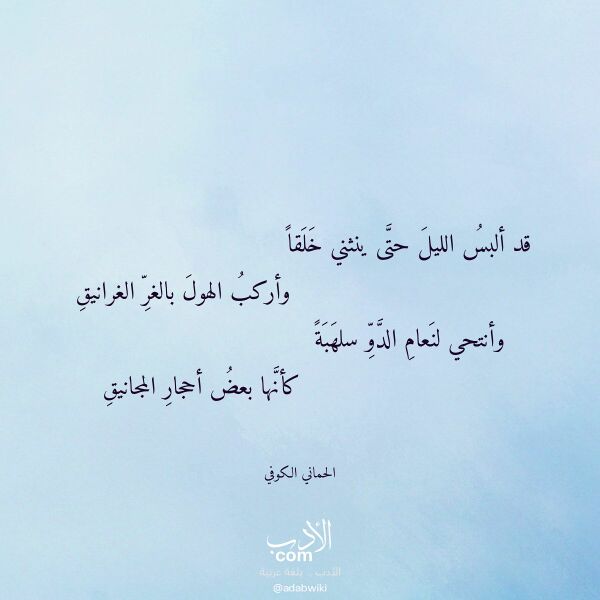 قد ألبسُ الليلَ حتَّى ينثني خَلَقاً
وأركبُ الهولَ بالغرِّ الغرانيقِ
وأنتحي لنَعامِ الدَّوِّ سلهَبَةً
كأنَّها بعضُ أحجارِ المجانيقِ
الحماني الكوفي
الأدب
com
الأدب .. بلغة عربية
@adabwiki